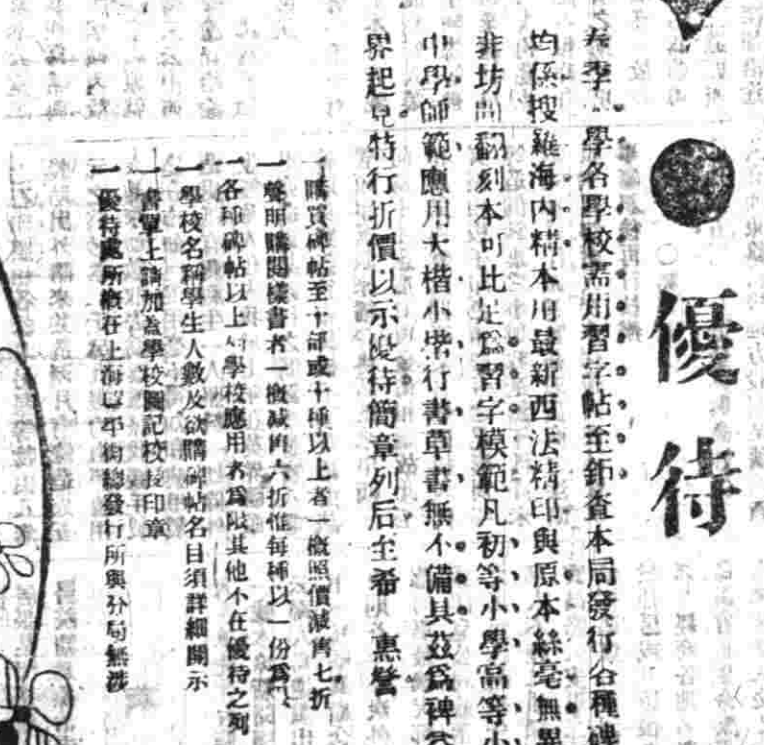 優待
春季 學各學校需用習字帖至鉅查本局發行各種碑
均係搜羅海內精本用最新西法精印與原本絲毫無異
非坊間翻刻本可比足爲習字模範凡初等小學高等小
中學師範應用大楷小楷行書草書無不備具茲爲裨益
界起見特行折價以示優待簡章列后至希 惠詧
一購買碑帖至十部或十種以上者一概照價減售七折
一聲明購閱樣書者一概減售六折惟每種以一份爲
一各種碑帖以上 學校應用者爲限其他不在優待之列
一學校名稱學生人數及欲購碑帖名目須詳細開示
一書單上請加蓋學校圖記校長印章
一優待處所概在上海 街總發行所與分局無涉